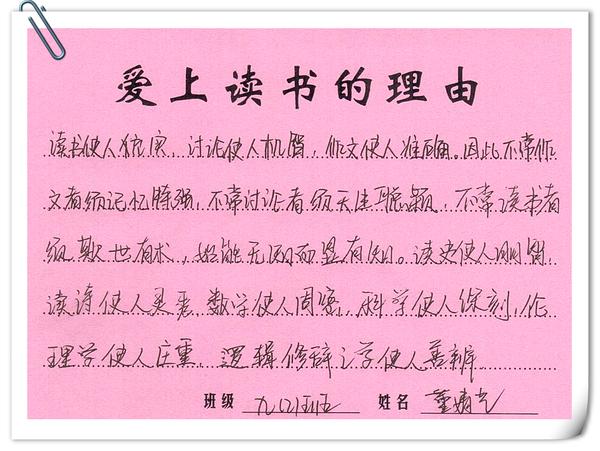 爱上读书的理由
读书使人充实,讨论使人机智,作文使人准确。因此不常作
文者须记忆特强,不常讨论者须天生聪颖,不常读书者
须欺世有术,始能无知而显有知。读史使人明智,
读诗使人灵秀,数学使人周密,科学使人深刻,伦
理学使人庄重,逻辑修辞之学使人善辨
班级 姓名 董